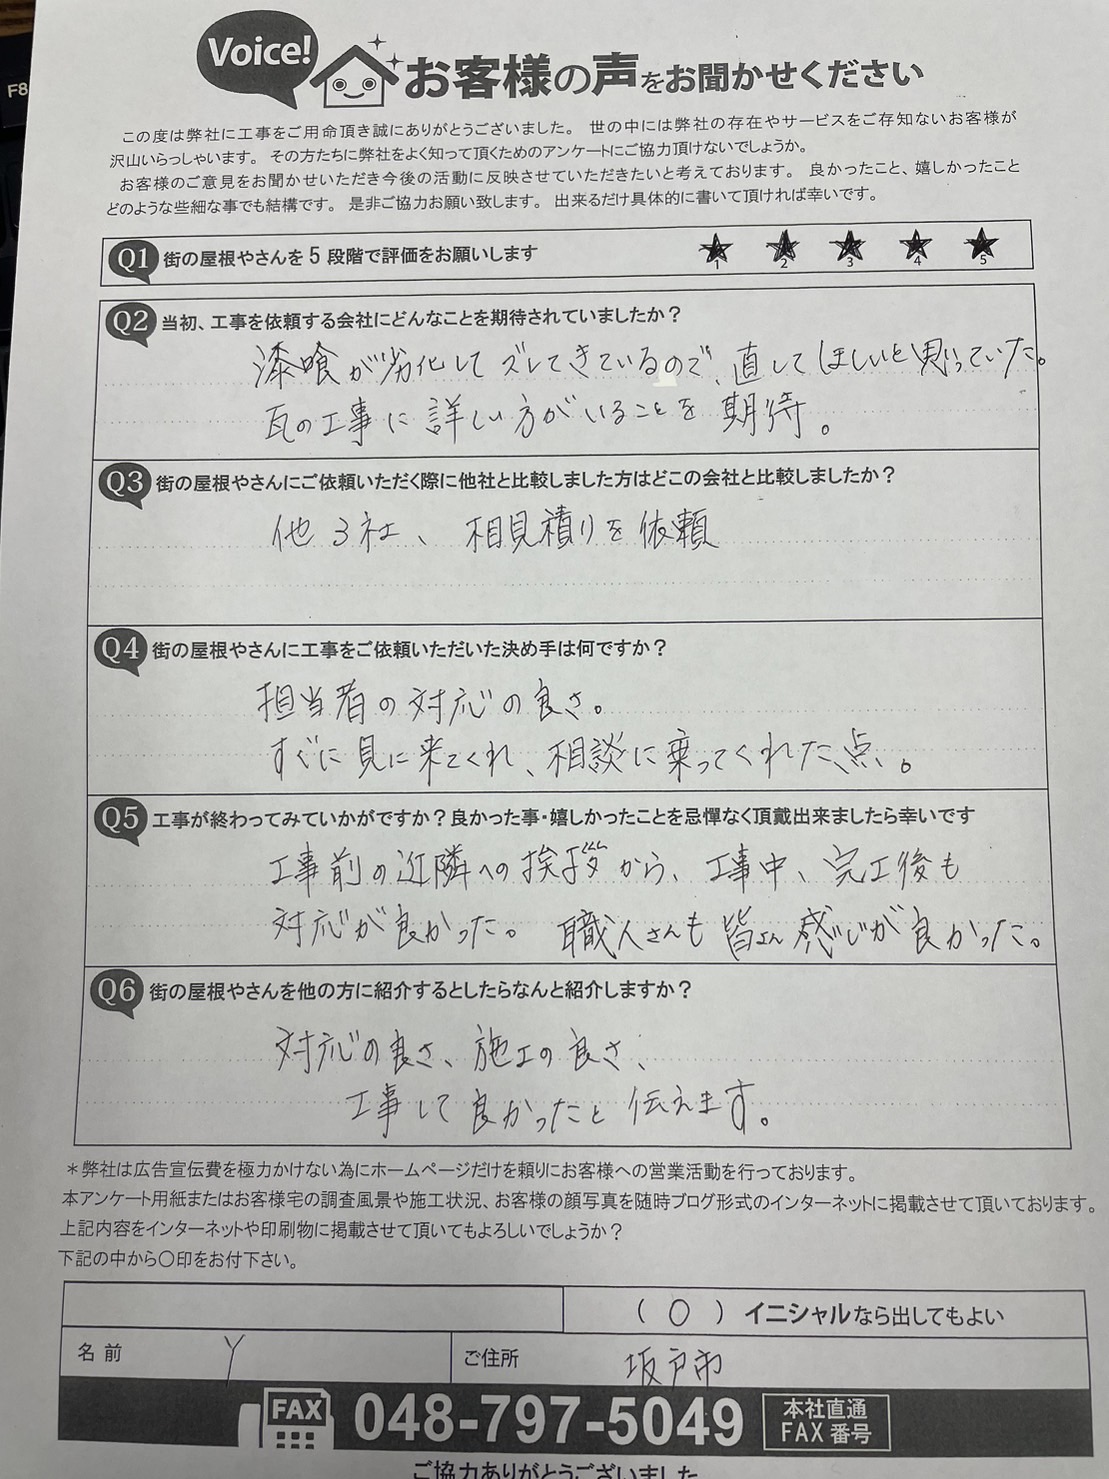 F8
Voice!
お客様の声をお聞かせください
この度は弊社に工事をご用命頂き誠にありがとうございました。 世の中には弊社の存在やサービスをご存知ないお客様が
沢山いらっしゃいます。 その方たちに弊社をよく知って頂くためのアンケートにご協力頂けないでしょうか。
お客様のご意見をお聞かせいただき今後の活動に反映させていただきたいと考えております。 良かったこと、嬉しかったこと
どのような些細な事でも結構です。 是非ご協力お願い致します。 出来るだけ具体的に書いて頂ければ幸いです。
Q1 街の屋根やさんを 5 段階で評価をお願いします ★ ★ ★ ★ ★
1 2 3 4 5
Q2 当初、工事を依頼する会社にどんなことを期待されていましたか？
漆喰が劣化してズレてきているので、直してほしいと思っていた。
瓦の工事に詳しい方がいることを期待。
Q3 街の屋根やさんにご依頼いただく際に他社と比較しました方はどこの会社と比較しましたか？
他3社、相見積りを依頼
Q4 街の屋根やさんに工事をご依頼いただいた決め手は何ですか？
担当者の対応の良さ。
すぐに見に来てくれ、相談に乗ってくれた点。
Q5 工事が終わってみていかがですか？良かった事・嬉しかったことを忌憚なく頂戴出来ましたら幸いです
工事前の近隣への挨拶から、工事中、完工後も
対応が良かった。 職人さんも皆さん感じが良かった。
Q6 街の屋根やさんを他の方に紹介するとしたらなんと紹介しますか？
対応の良さ、施工の良さ、
工事して良かったと伝えます。
＊弊社は広告宣伝費を極力かけない為にホームページだけを頼りにお客様への営業活動を行っております。
本アンケート用紙またはお客様宅の調査風景や施工状況、お客様の顔写真を随時ブログ形式のインターネットに掲載させて頂いております。
上記内容をインターネットや印刷物に掲載させて頂いてもよろしいでしょうか？
下記の中から〇印をお付下さい。
（ 〇 ）イニシャルなら出してもよい
名前 Y ご住所 坂戸市
FAX 048-797-5049 本社直通
FAX 番号
ご協力ありがとうございました